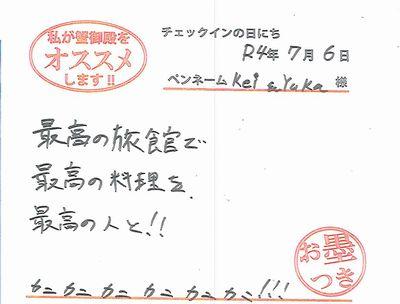 私が蟹御殿を
オススメ
します!!
チェックインの日にち
R4年 7月 6日
ペンネーム Kei & Yuka 様
最高の旅館で
最高の料理を
最高の人と!!
カニ カニ カニ カニ カニ カニ!!!
お墨
つき